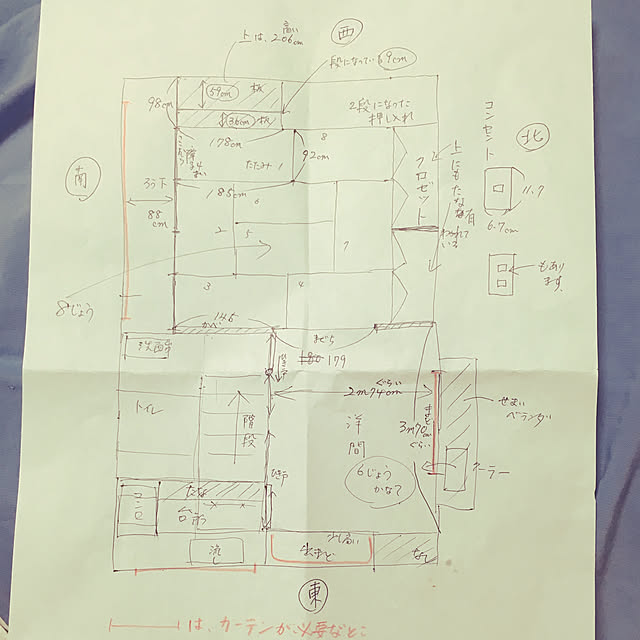 高い
上は、206cm
西
段になっている9cm
59cm 板
98cm
36cm 板
2段になった
押し入れ
コンセント
北
178cm
8
92cm
たたみ 1
クロゼット
上にもたな有
わかれている
11.7
6.7cm
南
ろう下
88
cm
185cm
6
2
5
7
もあり
ます。
3
4
8じょう
145
かべ
まどら
179
洗面台
2m74cm
ぐらい
せまい
ベランダ
トイレ
階段
洋間
まど
3m70cm
ぐらい
クーラー
6じょう
かな?
ひき戸
たな
コンロ
台所
流し
少し高い
出まど
なし
東
は、カーテンが必要なとこ